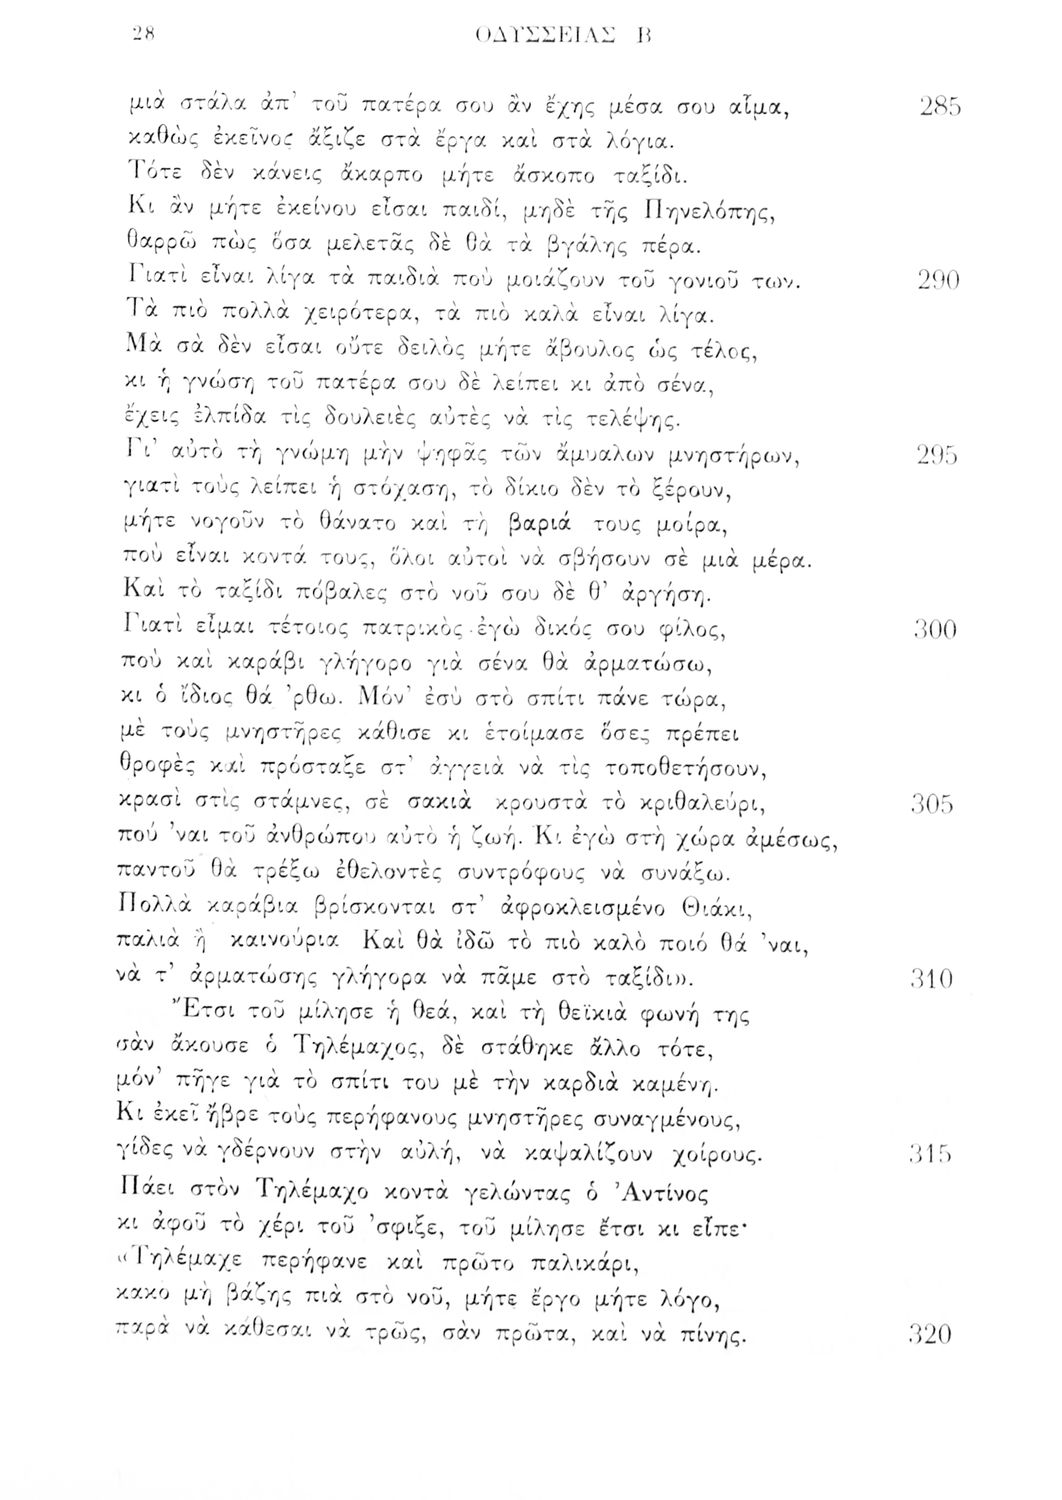 28 ΟΔΥΣΣΕΙΑΣ Β
μιὰ στάλα ἀπ' τοῦ πατέρα σου ἂν ἔχης μέσα σου αἷμα, 285
καθὼς ἐκεῖνος ἄξιζε στὰ ἔργα καὶ στὰ λόγια.
Τότε δὲν κάνεις ἄκαρπο μήτε ἄσκοπο ταξίδι.
Κι ἂν μήτε ἐκείνου εἶσαι παιδί, μηδὲ τῆς Πηνελόπης,
θαρρῶ πὼς ὅσα μελετᾶς δὲ θὰ τὰ βγάλης πέρα.
Γιατὶ εἶναι λίγα τὰ παιδιὰ ποὺ μοιάζουν τοῦ γονιοῦ των. 290
Τὰ πιὸ πολλὰ χειρότερα, τὰ πιὸ καλὰ εἶναι λίγα.
Μὰ σὰ δὲν εἶσαι οὔτε δειλὸς μήτε ἄβουλος ὡς τέλος,
κι ἡ γνώση τοῦ πατέρα σου δὲ λείπει κι ἀπὸ σένα,
ἔχεις ἐλπίδα τὶς δουλειὲς αὐτὲς νὰ τὶς τελέψης.
Γι' αὐτὸ τὴ γνώμη μὴν ψηφᾶς τῶν ἄμυαλων μνηστήρων, 295
γιατὶ τοὺς λείπει ἡ στόχαση, τὸ δίκιο δὲν τὸ ξέρουν,
μήτε νογοῦν τὸ θάνατο καὶ τὴ βαριά τους μοίρα,
ποὺ εἶναι κοντά τους, ὅλοι αὐτοὶ νὰ σβήσουν σὲ μιὰ μέρα.
Καὶ τὸ ταξίδι πόβαλες στὸ νοῦ σου δὲ θ' ἀργήση.
Γιατὶ εἶμαι τέτοιος πατρικὸς ἐγὼ δικός σου φίλος, 300
ποὺ καὶ καράβι γλήγορο γιὰ σένα θὰ ἀρματώσω,
κι ὁ ἴδιος θά 'ρθω. Μόν' ἐσὺ στὸ σπίτι πάνε τώρα,
μὲ τοὺς μνηστῆρες κάθισε κι ἑτοίμασε ὅσες πρέπει
θροφὲς καὶ πρόσταξε στ' ἀγγειὰ νὰ τὶς τοποθετήσουν,
κρασὶ στὶς στάμνες, σὲ σακιὰ κρουστὰ τὸ κριθαλεύρι, 305
πού 'ναι τοῦ ἀνθρώπου αὐτὸ ἡ ζωή. Κι ἐγὼ στὴ χώρα ἀμέσως,
παντοῦ θὰ τρέξω ἐθελοντὲς συντρόφους νὰ συνάξω.
Πολλὰ καράβια βρίσκονται στ' ἀφροκλεισμένο Θιάκι,
παλιὰ ἢ καινούρια Καὶ θὰ ἰδῶ τὸ πιὸ καλὸ ποιό θά 'ναι,
νὰ τ' ἀρματώσης γλήγορα νὰ πᾶμε στὸ ταξίδι». 310
Ἔτσι τοῦ μίλησε ἡ θεά, καὶ τὴ θεϊκιὰ φωνή της
σὰν ἄκουσε ὁ Τηλέμαχος, δὲ στάθηκε ἄλλο τότε,
μόν' πῆγε γιὰ τὸ σπίτι του μὲ τὴν καρδιὰ καμένη.
Κι ἐκεῖ ἥβρε τοὺς περήφανους μνηστῆρες συναγμένους,
γίδες νὰ γδέρνουν στὴν αὐλή, νὰ καψαλίζουν χοίρους. 315
Πάει στὸν Τηλέμαχο κοντὰ γελώντας ὁ Ἀντίνος
κι ἀφοῦ τὸ χέρι τοῦ 'σφιξε, τοῦ μίλησε ἔτσι κι εἶπε·
«Τηλέμαχε περήφανε καὶ πρῶτο παλικάρι,
κακο μὴ βάζης πιὰ στὸ νοῦ, μήτε ἔργο μήτε λόγο,
παρὰ νὰ κάθεσαι νὰ τρῶς, σὰν πρῶτα, καὶ νὰ πίνης. 320